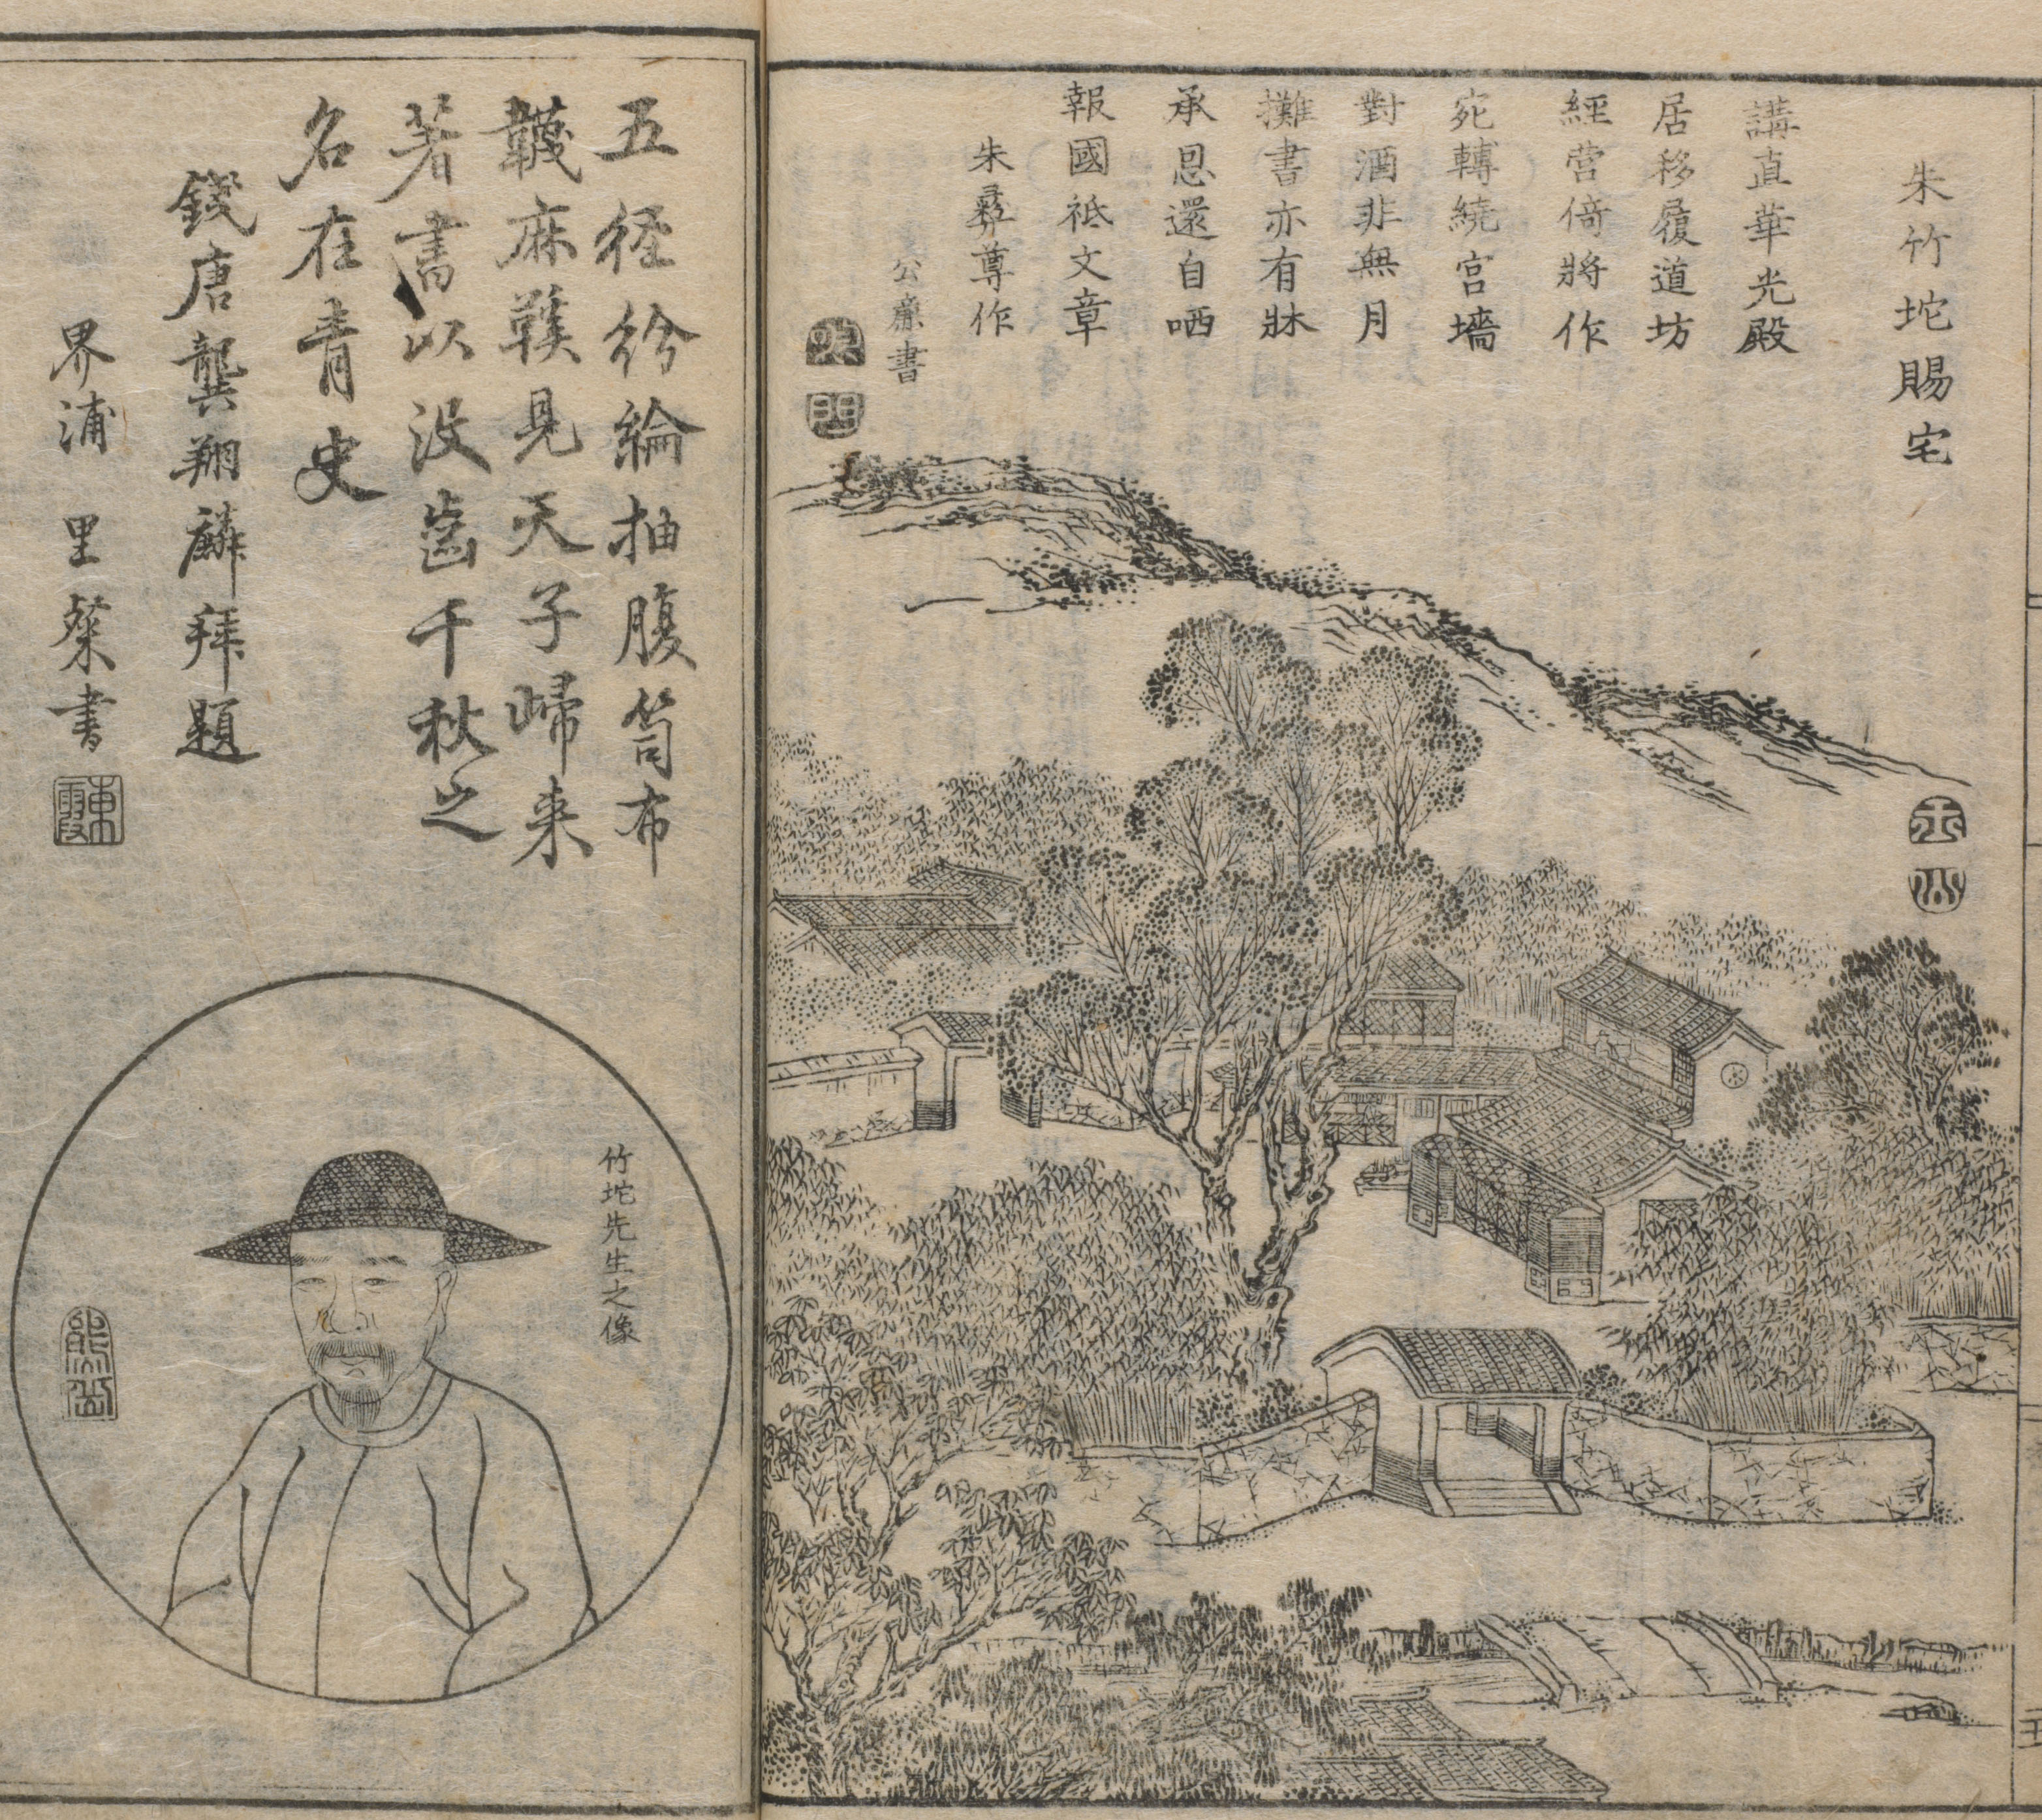 朱竹垞賜宅
講直華光殿
居移履道坊
經营倚將作
宛轉繞宮墻
對酒非無月
攤書亦有牀
承恩還自哂
報國袛文章
朱彝尊作
公齋書
玉山
五徑紛綸抽腹笥布
韈麻鞵見天子歸来
著書以没齒千秋之
名在青史
錢唐龔翔麟拜題
界浦 里粲書
東霞
竹垞先生之像
熊岳